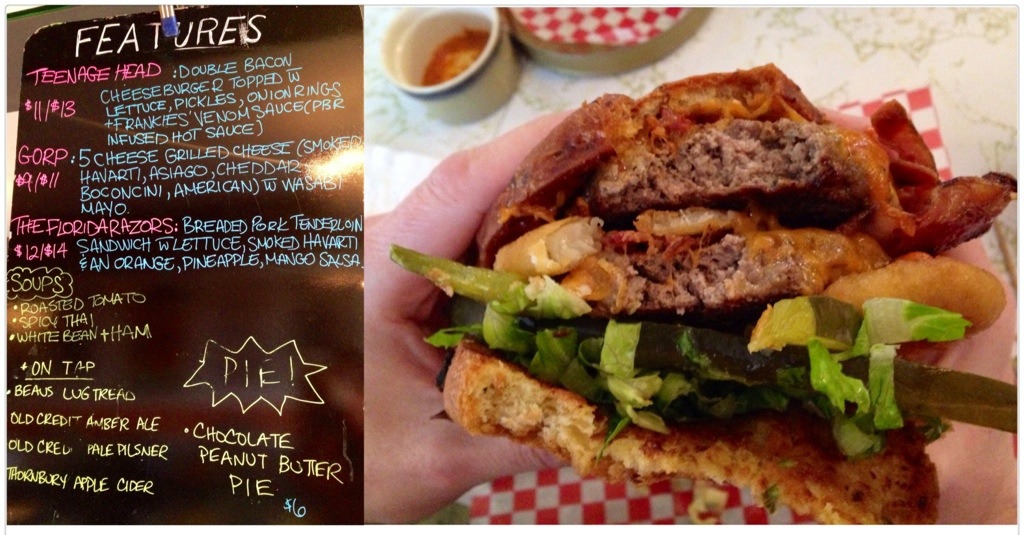 FEATURES
TEENAGE HEAD : DOUBLE BACON
$11/$13 CHEESEBURGER TOPPED W
LETTUCE, PICKLES, ONION RINGS
+ FRANKIES' VENOM SAUCE (PBR
INFUSED HOT SAUCE)
GORP : 5 CHEESE GRILLED CHEESE (SMOKED
$9/$11 HAVARTI, ASIAGO, CHEDDAR
BOCONCINI, AMERICAN) W WASABI
MAYO.
THE FLORIDA RAZORS : BREADED PORK TENDERLOIN
$12/$14 SANDWICH W LETTUCE, SMOKED HAVARTI
& AN ORANGE, PINEAPPLE, MANGO SALSA
SOUPS
• ROASTED TOMATO
• SPICY THAI
• WHITE BEAN + HAM
* ON TAP
• BEAUS LUGTREAD
OLD CREDIT AMBER ALE
OLD CREDIT PALE PILSNER
THORNBURY APPLE CIDER
PIE!
• CHOCOLATE
PEANUT BUTTER
PIE
$6